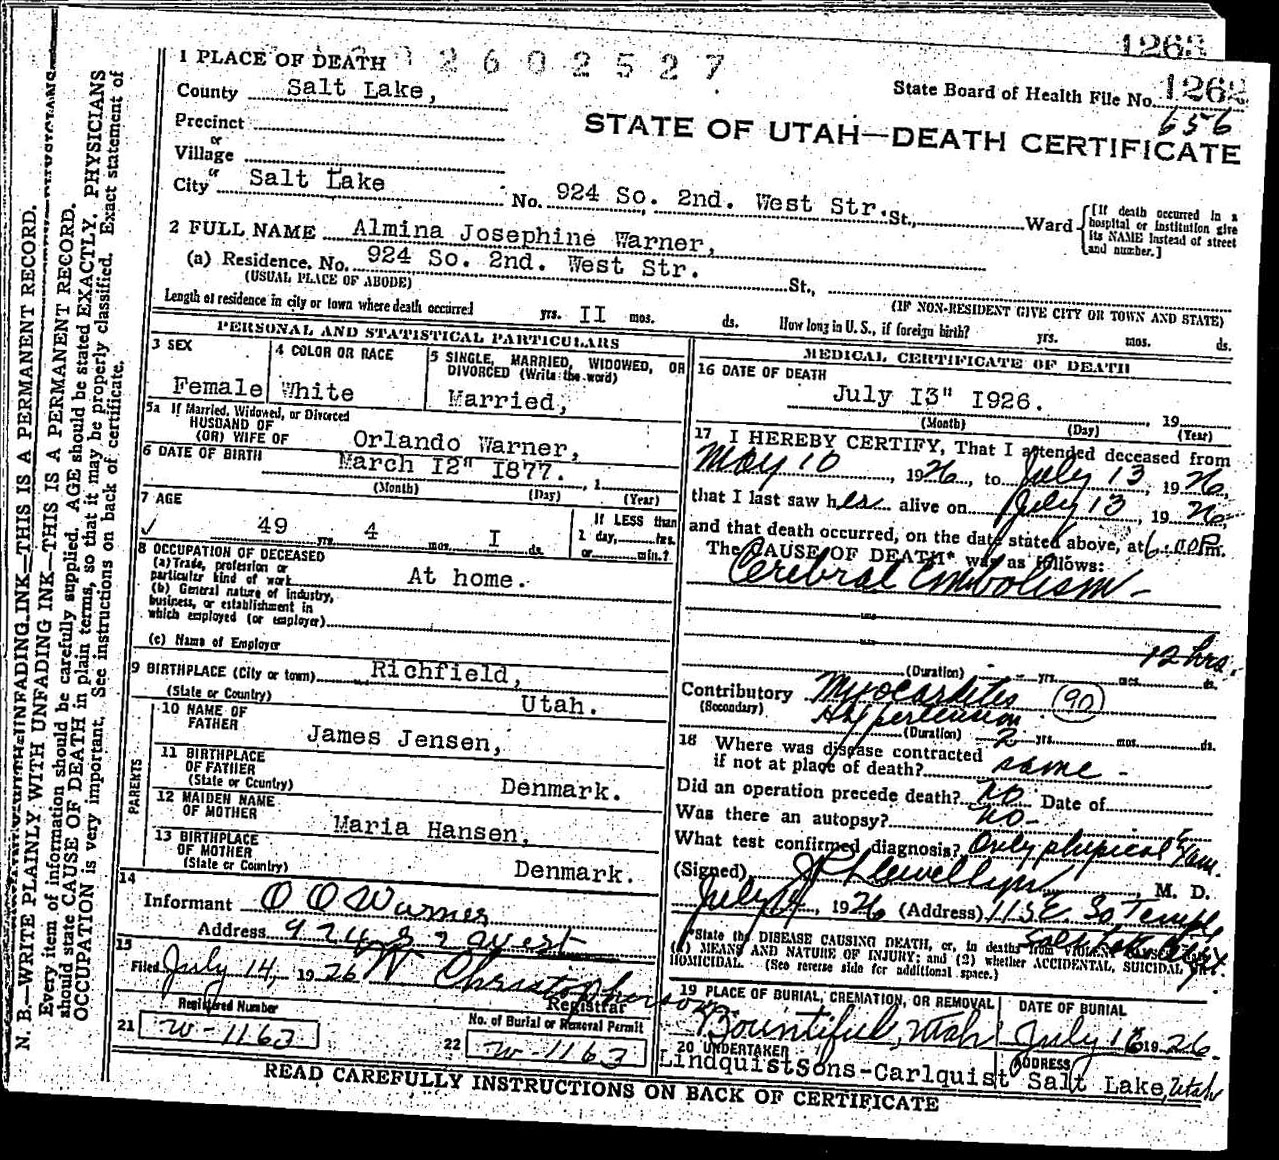 1263
1 PLACE OF DEATH 2602527
State Board of Health File No. 1262
656
County Salt Lake,
STATE OF UTAH—DEATH CERTIFICATE
Precinct
or
Village
or
City Salt Lake No. 924 So. 2nd. West Str. St., Ward {[If death occurred in a hospital or institution give its NAME instead of street and number.]
2 FULL NAME Almina Josephine Warner,
(a) Residence. No. 924 So. 2nd. West Str. St.,
(USUAL PLACE OF ABODE) (IF NON-RESIDENT GIVE CITY OR TOWN AND STATE)
Length of residence in city or town where death occurred yrs. II mos. ds. How long in U.S., if foreign birth? yrs. mos. ds.
PERSONAL AND STATISTICAL PARTICULARS
3 SEX
Female
4 COLOR OR RACE
White
5 SINGLE, MARRIED, WIDOWED, OR DIVORCED (Write the word)
Married,
5a If Married, Widowed, or Divorced
HUSBAND OF
(OR) WIFE OF Orlando Warner,
6 DATE OF BIRTH March I2" I877. , 1
(Month) (Day) (Year)
7 AGE
49 yrs. 4 mos. I ds.
If LESS than
1 day, hrs.
or min.?
8 OCCUPATION OF DECEASED
(a) Trade, profession or
particular kind of work At home.
(b) General nature of industry,
business, or establishment in
which employed (or employer)
(c) Name of Employer
9 BIRTHPLACE (City or town) Richfield,
(State or Country) Utah.
PARENTS
10 NAME OF
FATHER James Jensen,
11 BIRTHPLACE
OF FATHER
(State or Country) Denmark.
12 MAIDEN NAME
OF MOTHER Maria Hansen,
13 BIRTHPLACE
OF MOTHER
(State or Country) Denmark.
14
Informant O O Warner
Address 924 S 2 West
15
Filed July 14, 1926 W Christopherson
Registrar
Registered Number No. of Burial or Removal Permit
21 W-1163 22 W-1163
MEDICAL CERTIFICATE OF DEATH
16 DATE OF DEATH
July I3" I926. 19
(Month) (Day) (Year)
17 I HEREBY CERTIFY, That I attended deceased from
May 10 1926, to July 13 1926,
that I last saw her alive on July 13, 1926,
and that death occurred, on the date stated above, at 6:00P m.
The CAUSE OF DEATH* was as follows:
Cerebral Embolism -
12 hrs.
(Duration) yrs. mos. ds.
Contributory Myocarditis 90
(Secondary) Hypertension
(Duration) 2 yrs. mos. ds.
18 Where was disease contracted
if not at place of death? same -
Did an operation precede death? no Date of
Was there an autopsy? no-
What test confirmed diagnosis? Only physical Exam.
(Signed) Llewellyn, M. D.
July 14, 1926 (Address) 115 E. So Temple
Salt Lake City.
*State the DISEASE CAUSING DEATH, or, in deaths from VIOLENT CAUSES,
(1) MEANS AND NATURE OF INJURY; and (2) whether ACCIDENTAL, SUICIDAL OR
HOMICIDAL. (See reverse side for additional space.)
19 PLACE OF BURIAL, CREMATION, OR REMOVAL DATE OF BURIAL
Bountiful, Utah July 16 1926.
20 UNDERTAKER ADDRESS
LindquistSons-Carlquist Salt Lake, Utah
READ CAREFULLY INSTRUCTIONS ON BACK OF CERTIFICATE
N. B.—WRITE PLAINLY WITH UNFADING INK—THIS IS A PERMANENT RECORD.
Every item of information should be carefully supplied. AGE should be stated EXACTLY. PHYSICIANS
should state CAUSE OF DEATH in plain terms, so that it may be properly classified. Exact statement of
OCCUPATION is very important. See instructions on back of certificate.